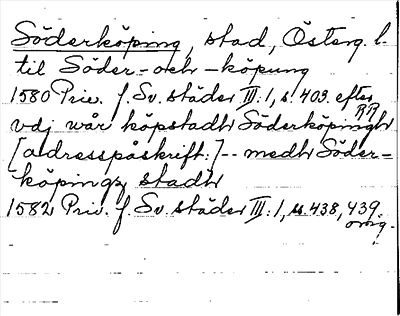 Söderköping, stad, Österg. l.
til Söder- och -köpung
1580 Priv. f. Sv. städer III: 1, s. 403. efter RR
vdj wår köpstadh Söderköpingh
[adresspåskrift:] -- medh Söder-
köpings stadh
1582 Priv. f. Sv. städer III: 1, s. 438, 439.
orig.